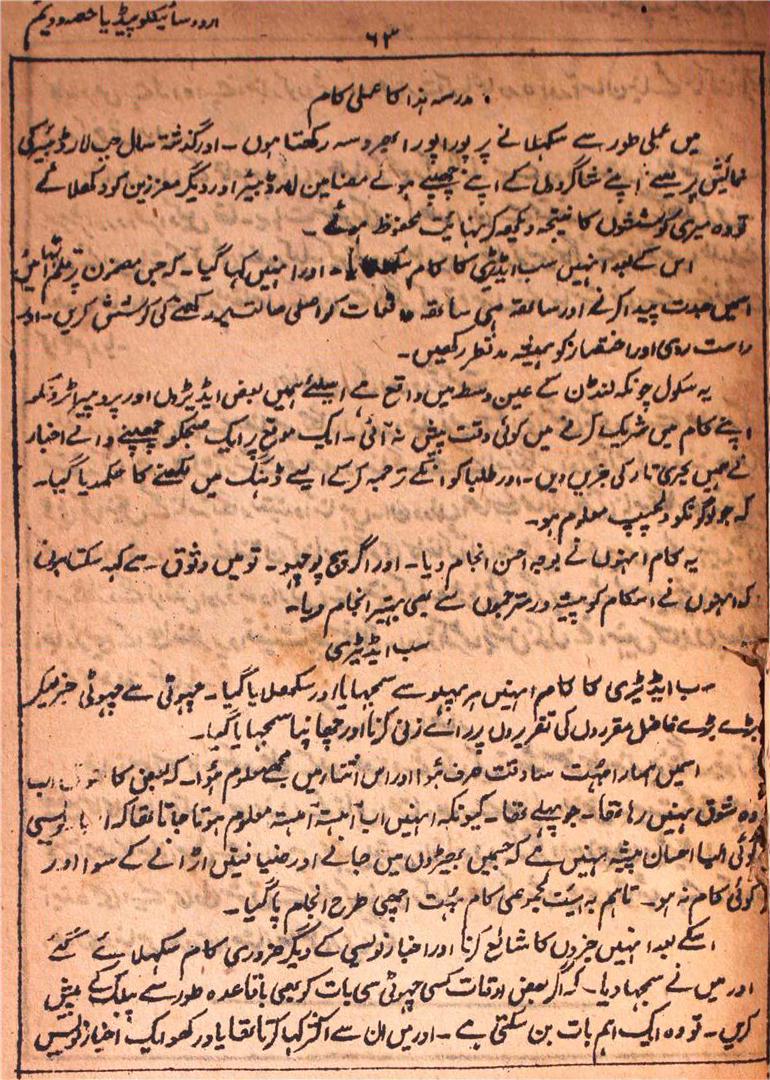 اردو سائیکلوپیڈیا حصہ دویم
۶۳
مدرسہ ہذا کا عملی کام
میں عملی طور سے سکھلانے پر پورا پورا بھروسہ رکھتا ہوں۔ اور گذشتہ سال جب لارڈ
نمائش پر میں نے اپنے شاگردوں کے اپنے چھپے ہوئے مضامین لارڈ اور دیگر معززین کو دکھلائے
تو وہ میری کوششوں کا نتیجہ دیکھ کر نہایت محفوظ ہوئے۔
اس کے بعد انہیں سب ایڈیٹری کا کام سکھایا۔ اور انہیں کہا گیا۔ کہ جس مضمون پر قلم اٹھائیں
اسمیں جدت پیدا کرنے اور ساتھ ہی ساتھ واقعات کو اصلی حالت پر رکھنے کی کوشش کریں۔ اور
راست روی اور اختصار کو ہمیشہ مدنظر رکھیں۔
یہ سکول چونکہ لنڈن کے عین وسط میں واقع ہے اسلئے ہمیں بعض ایڈیٹروں اور پروپرائٹرونکو
اپنے کام میں شریک کرنے میں کوئی دقت پیش نہ آئی۔ ایک موقع پر ایک صبحکو چھپنے والے اخبار
نے ہمیں بحری تار کی خبریں دیں۔ اور طلبا کو انکے ترجمہ کرکے ایسے ڈہنگ میں لکھنے کا حکمدیا گیا۔
کہ جو لوگونکو دلچسپ معلوم ہو۔
یہ کام انہوں نے بوجہ احسن انجام دیا۔ اور اگر سچ پوچھو۔ تو میں وثوق سے کہہ سکتا ہوں
کہ انہوں نے اسکام کو پیشہ ور مترجموں سے بھی بہتر انجام دیا۔
سب ایڈیٹری
سب ایڈیٹری کا کام انہیں ہر پہلو سے سمجہایا اور سکھلایا گیا۔ چھوٹی سے چھوٹی خبر لیکر
بڑے بڑے فاضل مقرروں کی تقریروں پر رائے زنی کرنا اور چھاپنا سمجہایا گیا۔
اسمیں ہمارا بہت سا وقت صرف ہؤا اور اس اثنا میں مجھے معلوم ہؤا۔ کہ بعض کا اب
وہ شوق نہیں رہا تھا۔ جو پہلے تھا۔ کیونکہ انہیں اب آہستہ آہستہ معلوم ہوتا جاتا تھا کہ اخبار نویسی
کوئی ایسا احسان پیشہ نہیں ہے کہ جسمیں بھیڑوں میں جانے اور ضیافتیں اڑانے کے سوا اور
کوئی کام نہ ہو۔ تاہم بہ ہیئت مجموعی کام بہت اچھی طرح انجام پا گیا۔
اسکے بعد انہیں خبروں کا شائع کرنا اور اخبار نویسی کے دیگر ضروری کام سکھلائے گئے
اور میں نے سمجہا دیا۔ کہ اگر بعض اوقات کسی چھوٹی سی بات کو بھی باقاعدہ طور سے پبلک کے پیش
کریں۔ تو وہ ایک اہم بات بن سکتی ہے۔ اور میں ان سے اکثر کہا کرتا تھا یاد رکھو ایک اخبار نویس